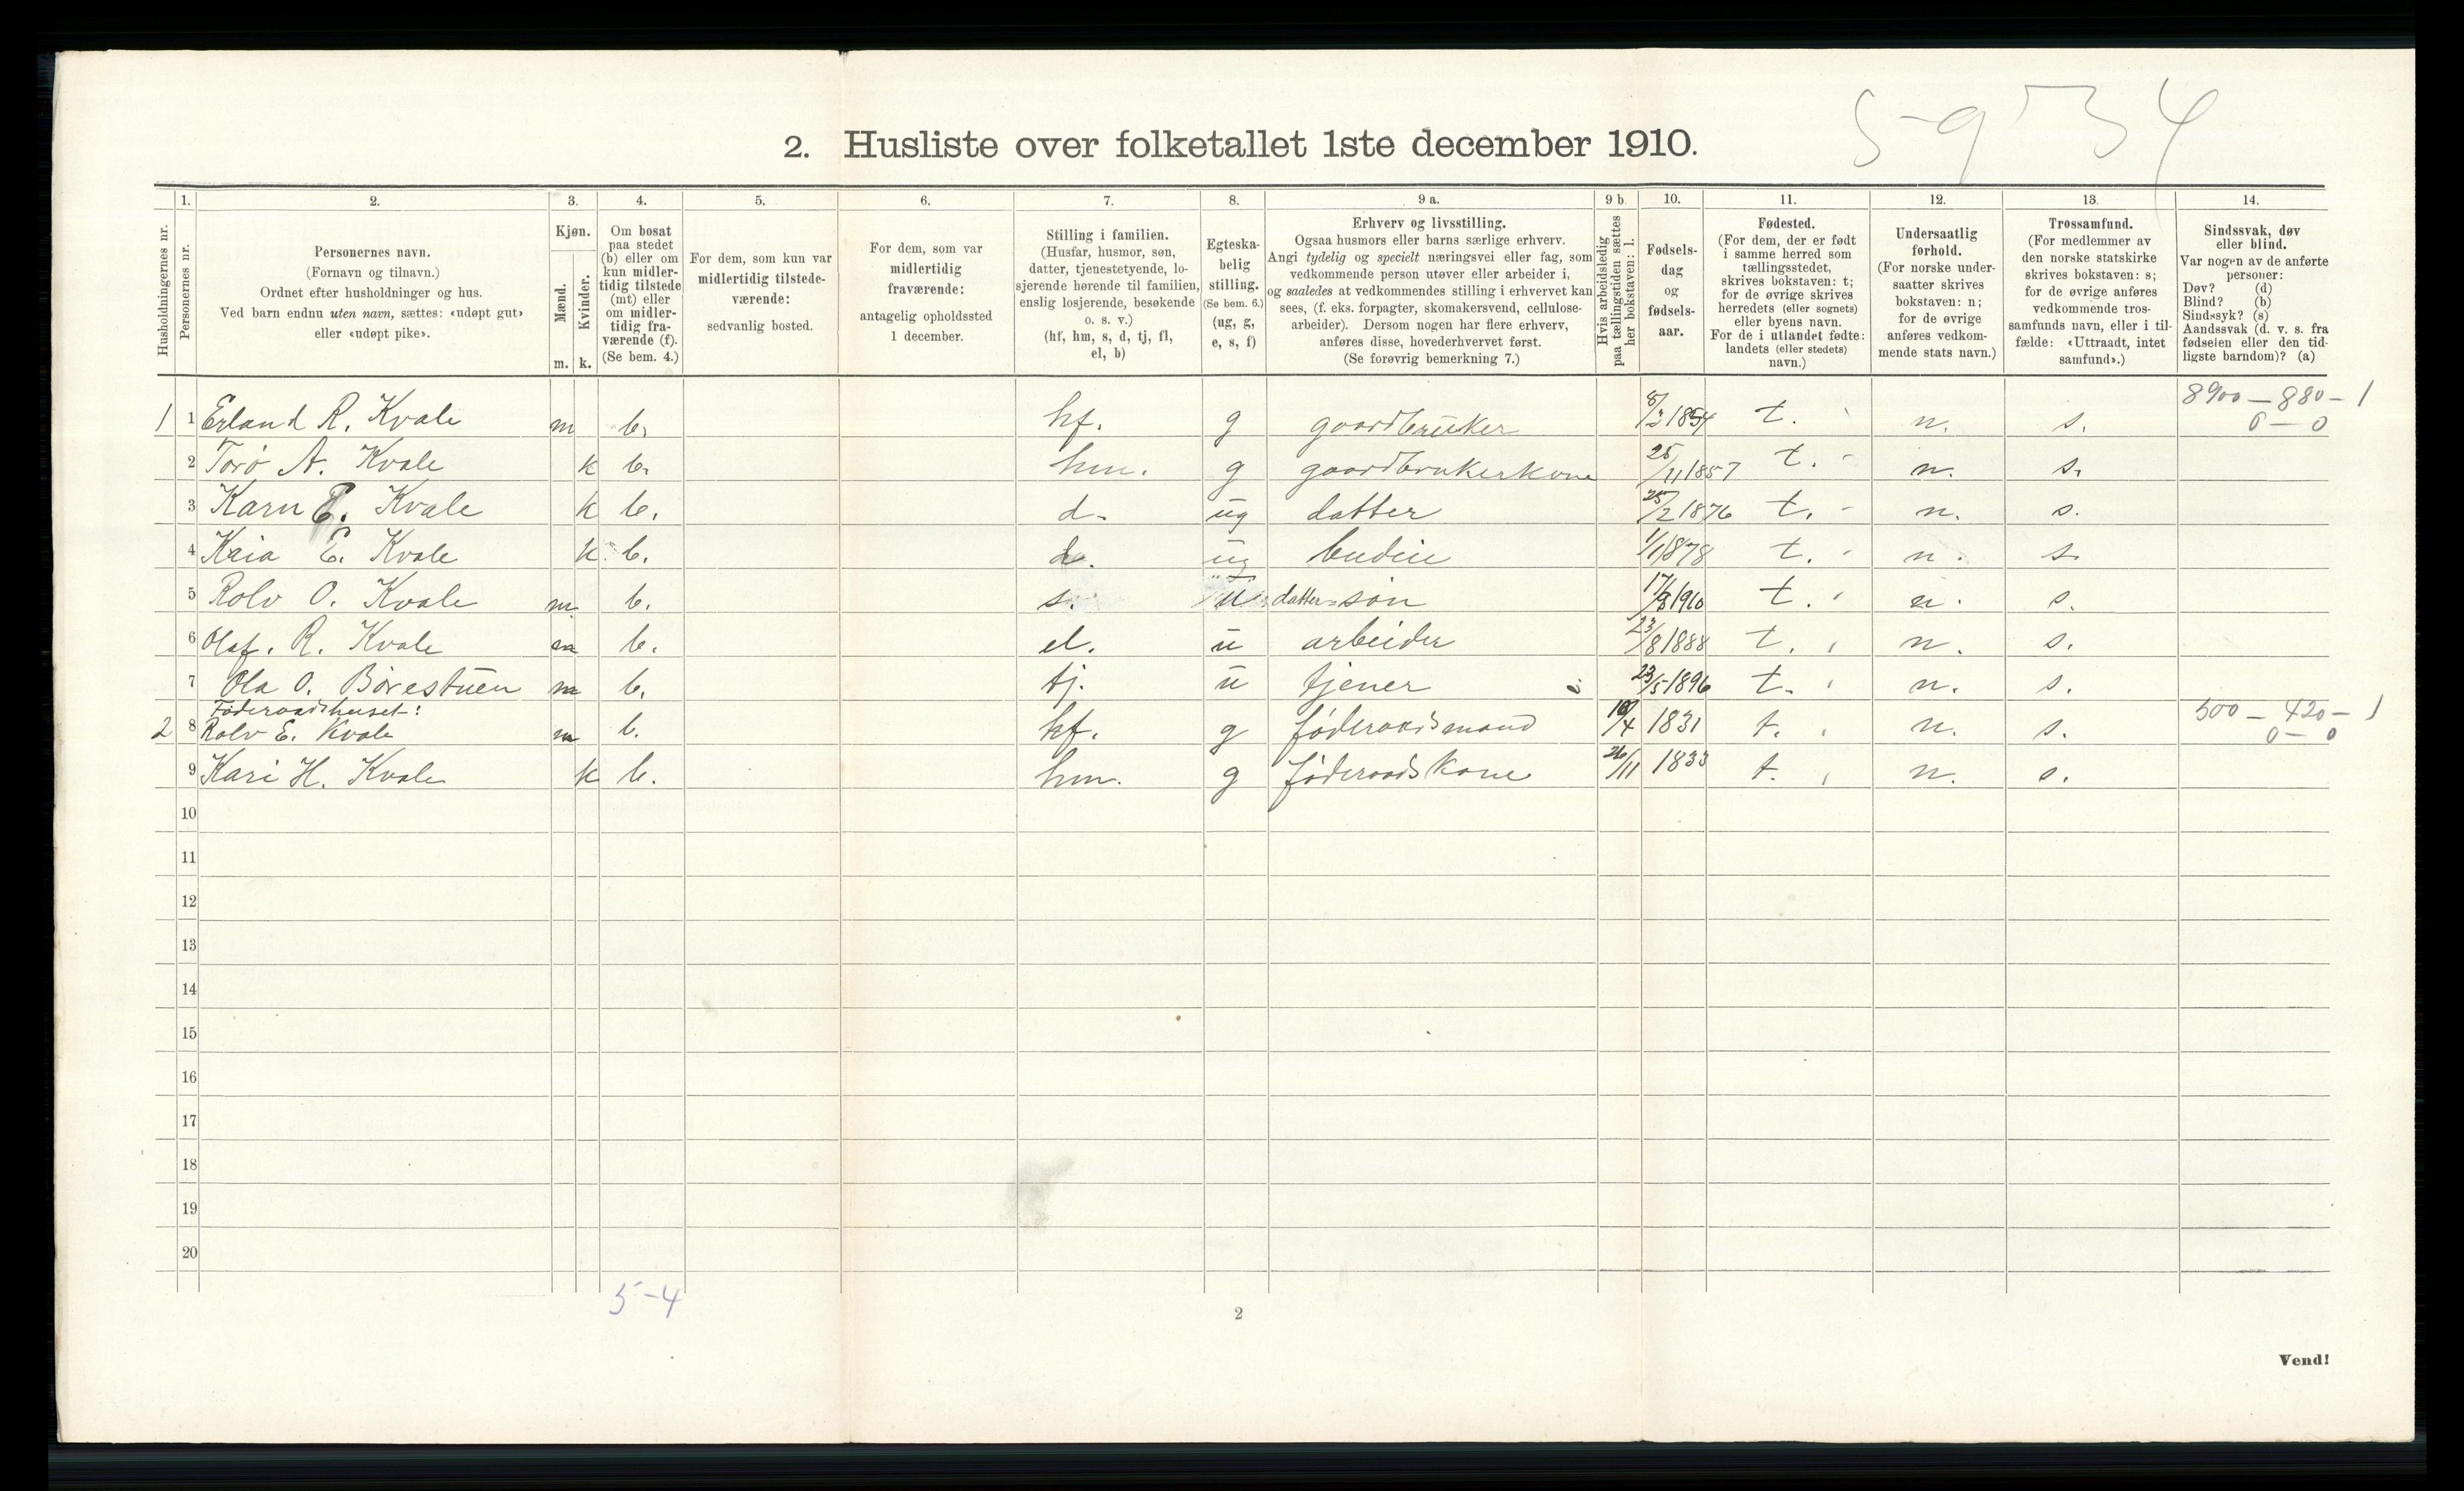 5-9 34
2. Husliste over folketallet 1ste december 1910.
1. 2. 3. 4. 5. 6. 7. 8. 9 a. 9 b. 10. 11. 12. 13. 14.
Husholdningernes nr.
Personernes nr.
Personernes navn.
(Fornavn og tilnavn.)
Ordnet efter husholdninger og hus.
Ved barn endnu uten navn, sættes: «udøpt gut»
eller «udøpt pike».
Kjøn.
Mænd.
Kvinder.
m. k.
Om bosat
paa stedet
(b) eller om
kun midler-
tidig tilstede
(mt) eller
om midler-
tidig fra-
værende (f).
(Se bem. 4.)
For dem, som kun var
midlertidig tilstede-
værende:
sedvanlig bosted.
For dem, som var
midlertidig
fraværende:
antagelig opholdssted
1 december.
Stilling i familien.
(Husfar, husmor, søn,
datter, tjenestetyende, lo-
sjerende hørende til familien,
enslig losjerende, besøkende
o. s. v.)
(hf, hm, s, d, tj, fl,
el, b)
Egteska-
belig
stilling.
(Se bem. 6.)
(ug, g,
e, s, f)
Erhverv og livsstilling.
Ogsaa husmors eller barns særlige erhverv.
Angi tydelig og specielt næringsvei eller fag, som
vedkommende person utøver eller arbeider i,
og saaledes at vedkommendes stilling i erhvervet kan
sees, (f. eks. forpagter, skomakersvend, cellulose-
arbeider). Dersom nogen har flere erhverv,
anføres disse, hovederhvervet først.
(Se forøvrig bemerkning 7.)
Hvis arbeidsledig
paa tællingstiden sættes
her bokstaven: l.
Fødsels-
dag
og
fødsels-
aar.
Fødested.
(For dem, der er født
i samme herred som
tællingsstedet,
skrives bokstaven: t;
for de øvrige skrives
herredets (eller sognets)
eller byens navn.
For de i utlandet fødte:
landets (eller stedets)
navn.)
Undersaatlig
forhold.
(For norske under-
saatter skrives
bokstaven: n;
for de øvrige
anføres vedkom-
mende stats navn.)
Trossamfund.
(For medlemmer av
den norske statskirke
skrives bokstaven: s;
for de øvrige anføres
vedkommende tros-
samfunds navn, eller i til-
fælde: «Uttraadt, intet
samfund».)
Sindssvak, døv
eller blind.
Var nogen av de anførte
personer:
Døv? (d)
Blind? (b)
Sindssyk? (s)
Aandssvak (d. v. s. fra
fødselen eller den tid-
ligste barndom)? (a)
8900 - 880 - 1
1 1 Erland R. Kvale m b. hf. g gaardbruker 1854 t. n. s. 0 - 0
2 Torø A. Kvale k b. hm. g gaardbrukerkone 25/11 1857 t. n. s.
3 Karn E. Kvale k b. d. ug datter 25/2 1876 t. n. s.
4 Kaia E. Kvale k b. d. ug budeie 1/1 1878 t. n. s.
5 Rolv O. Kvale m b. s. u datter-søn 17/8 1910 t. n. s.
6 Olaf. R. Kvale m b. el. u arbeider 23/8 1888 t. n. s.
7 Ola O. Børestuen m b. tj. u tjener 23/5 1896 t. n. s.
Føderaadshuset: 500 - 420 - 1
2 8 Rolv E. Kvale m b. hf. g føderaadsmand 10/4 1831 t. n. s. 0 - 0
9 Kari H. Kvale k b. hm. g føderaadskone 26/11 1833 t. n. s.
10
11
12
13
14
15
16
17
18
19
20
5-4
2
Vend!